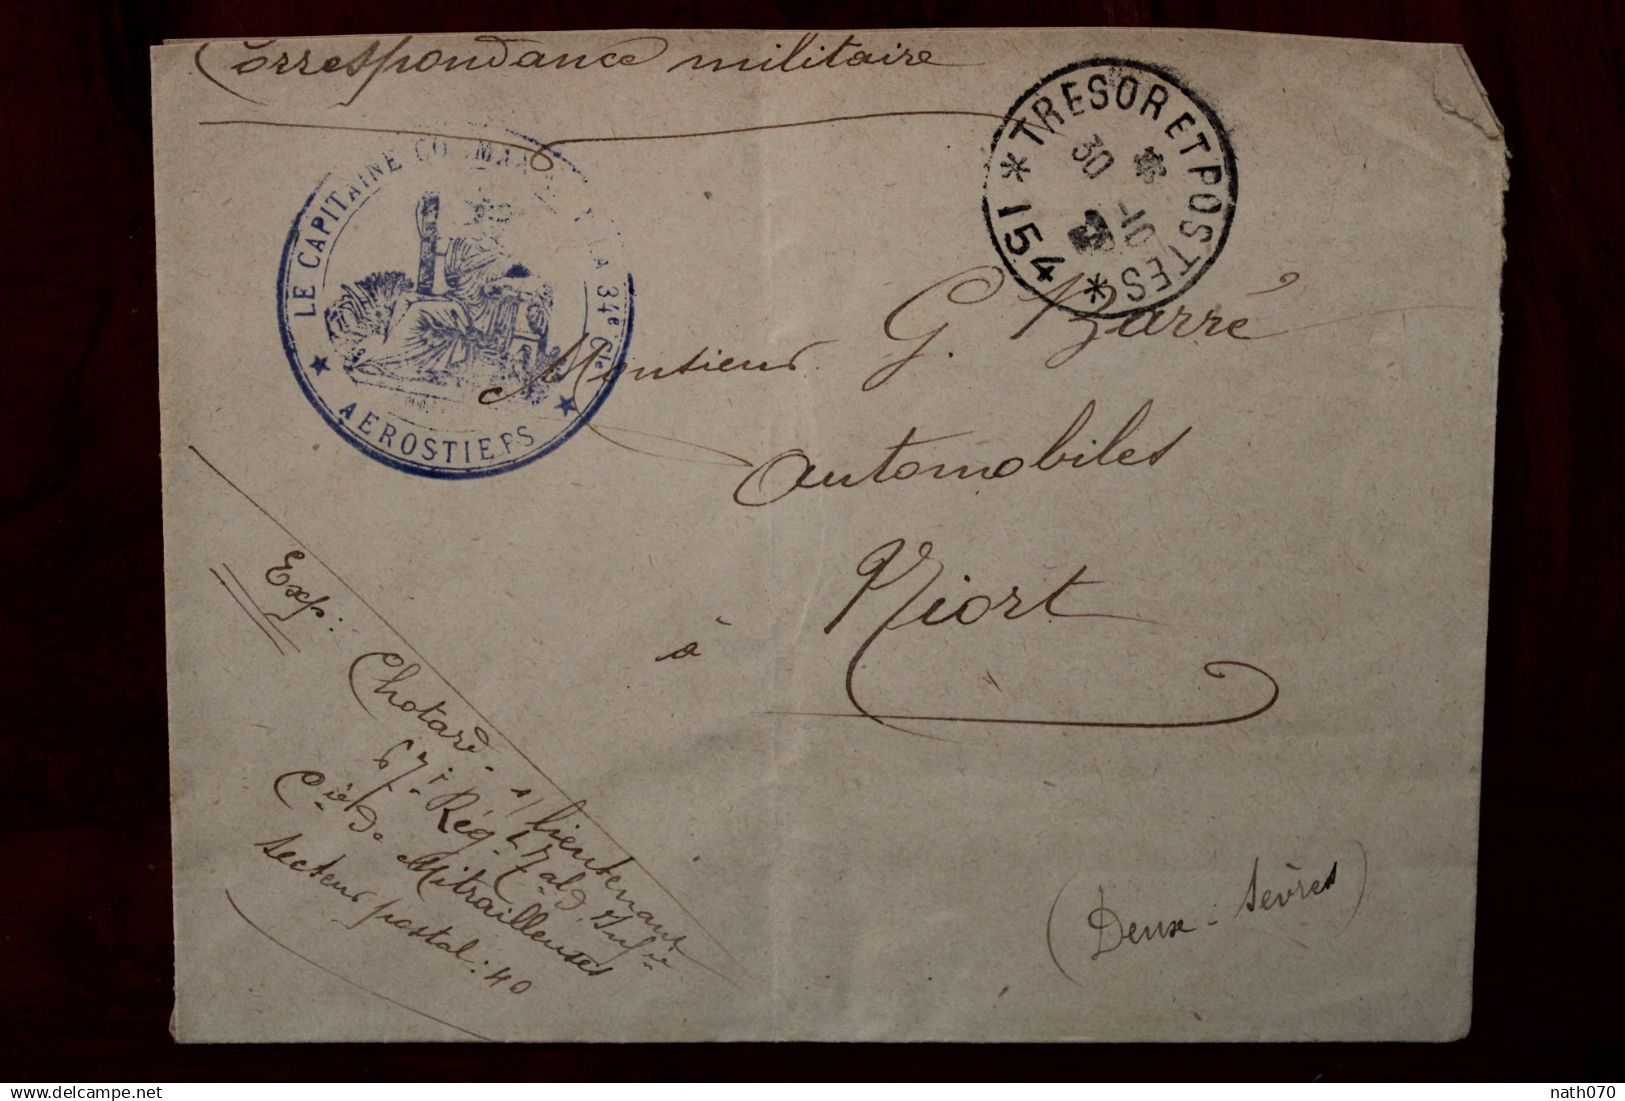 Correspondance militaire
LE CAPITAINE CO MMAN LA 34e Cie
★ AEROSTIERS ★
* TRESOR ET POSTES * 154
30 -10
Monsieur G. Barré
Automobiles
à Niort
(Deux-Sèvres)
Exp:
Chotard - s/lieutenant
67e Rég. d'Infie
Cie de Mitrailleuses
secteur postal: 40
nath070